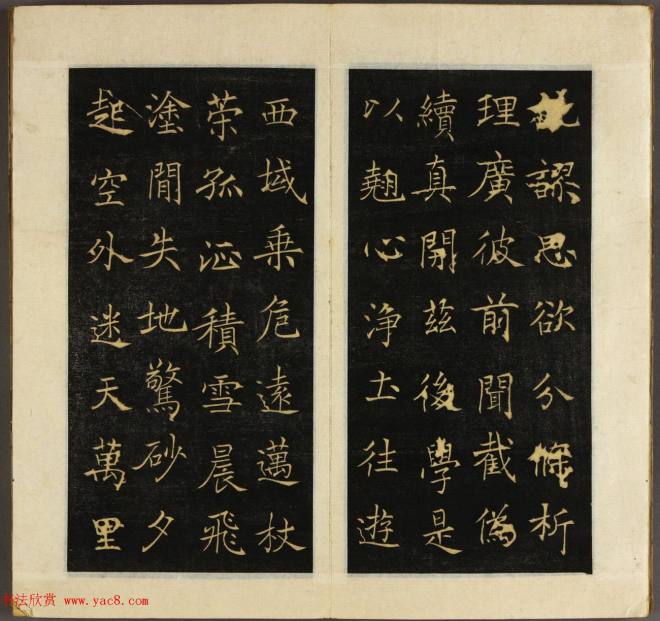 謬思欲分條析
理廣彼前聞截僞
續真開茲後學是
以翹心浄土往遊
西域乘危遠邁杖
策孤征積雪晨飛
塗間失地驚砂夕
起空外迷天萬里
书法欣赏 www.yac8.com